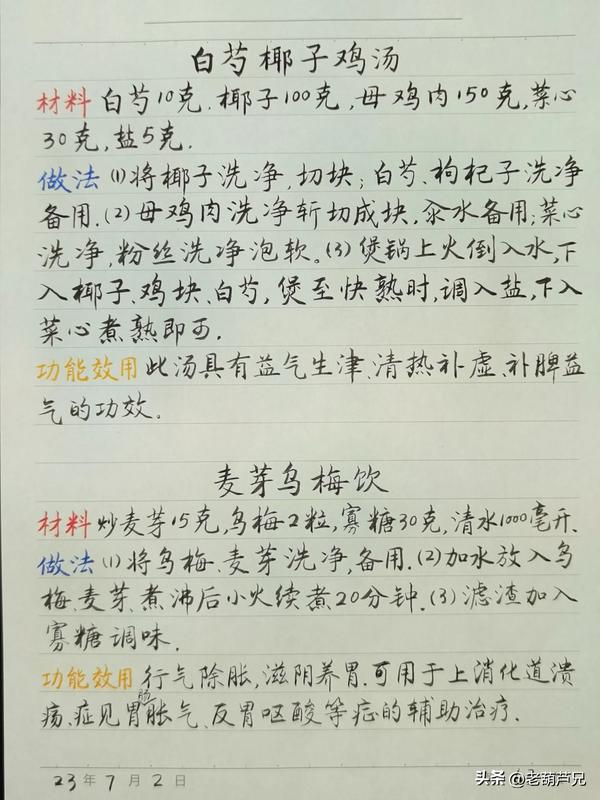 白芍椰子鸡汤
材料 白芍10克.椰子100克,母鸡肉150克,菜心
30克,盐5克.
做法 (1)将椰子洗净,切块;白芍、枸杞子洗净
备用.(2)母鸡肉洗净斩切成块,汆水备用;菜心
洗净,粉丝洗净泡软。(3)煲锅上火倒入水,下
入椰子、鸡块、白芍,煲至快熟时,调入盐,下入
菜心煮熟即可.
功能效用 此汤具有益气生津、清热补虚、补脾益
气的功效.
麦芽乌梅饮
材料 炒麦芽15克,乌梅2粒,寡糖30克,清水1000毫升.
做法 (1)将乌梅、麦芽洗净,备用.(2)加水放入乌
梅、麦芽、煮沸后小火续煮20分钟.(3)滤渣加入
寡糖调味.
功能效用 行气除胀,滋阴养胃.可用于上消化道溃
疡、症见胃脘胀气、反胃呕酸等症的辅助治疗.
23年7月2日
头条 @老葫芦兄